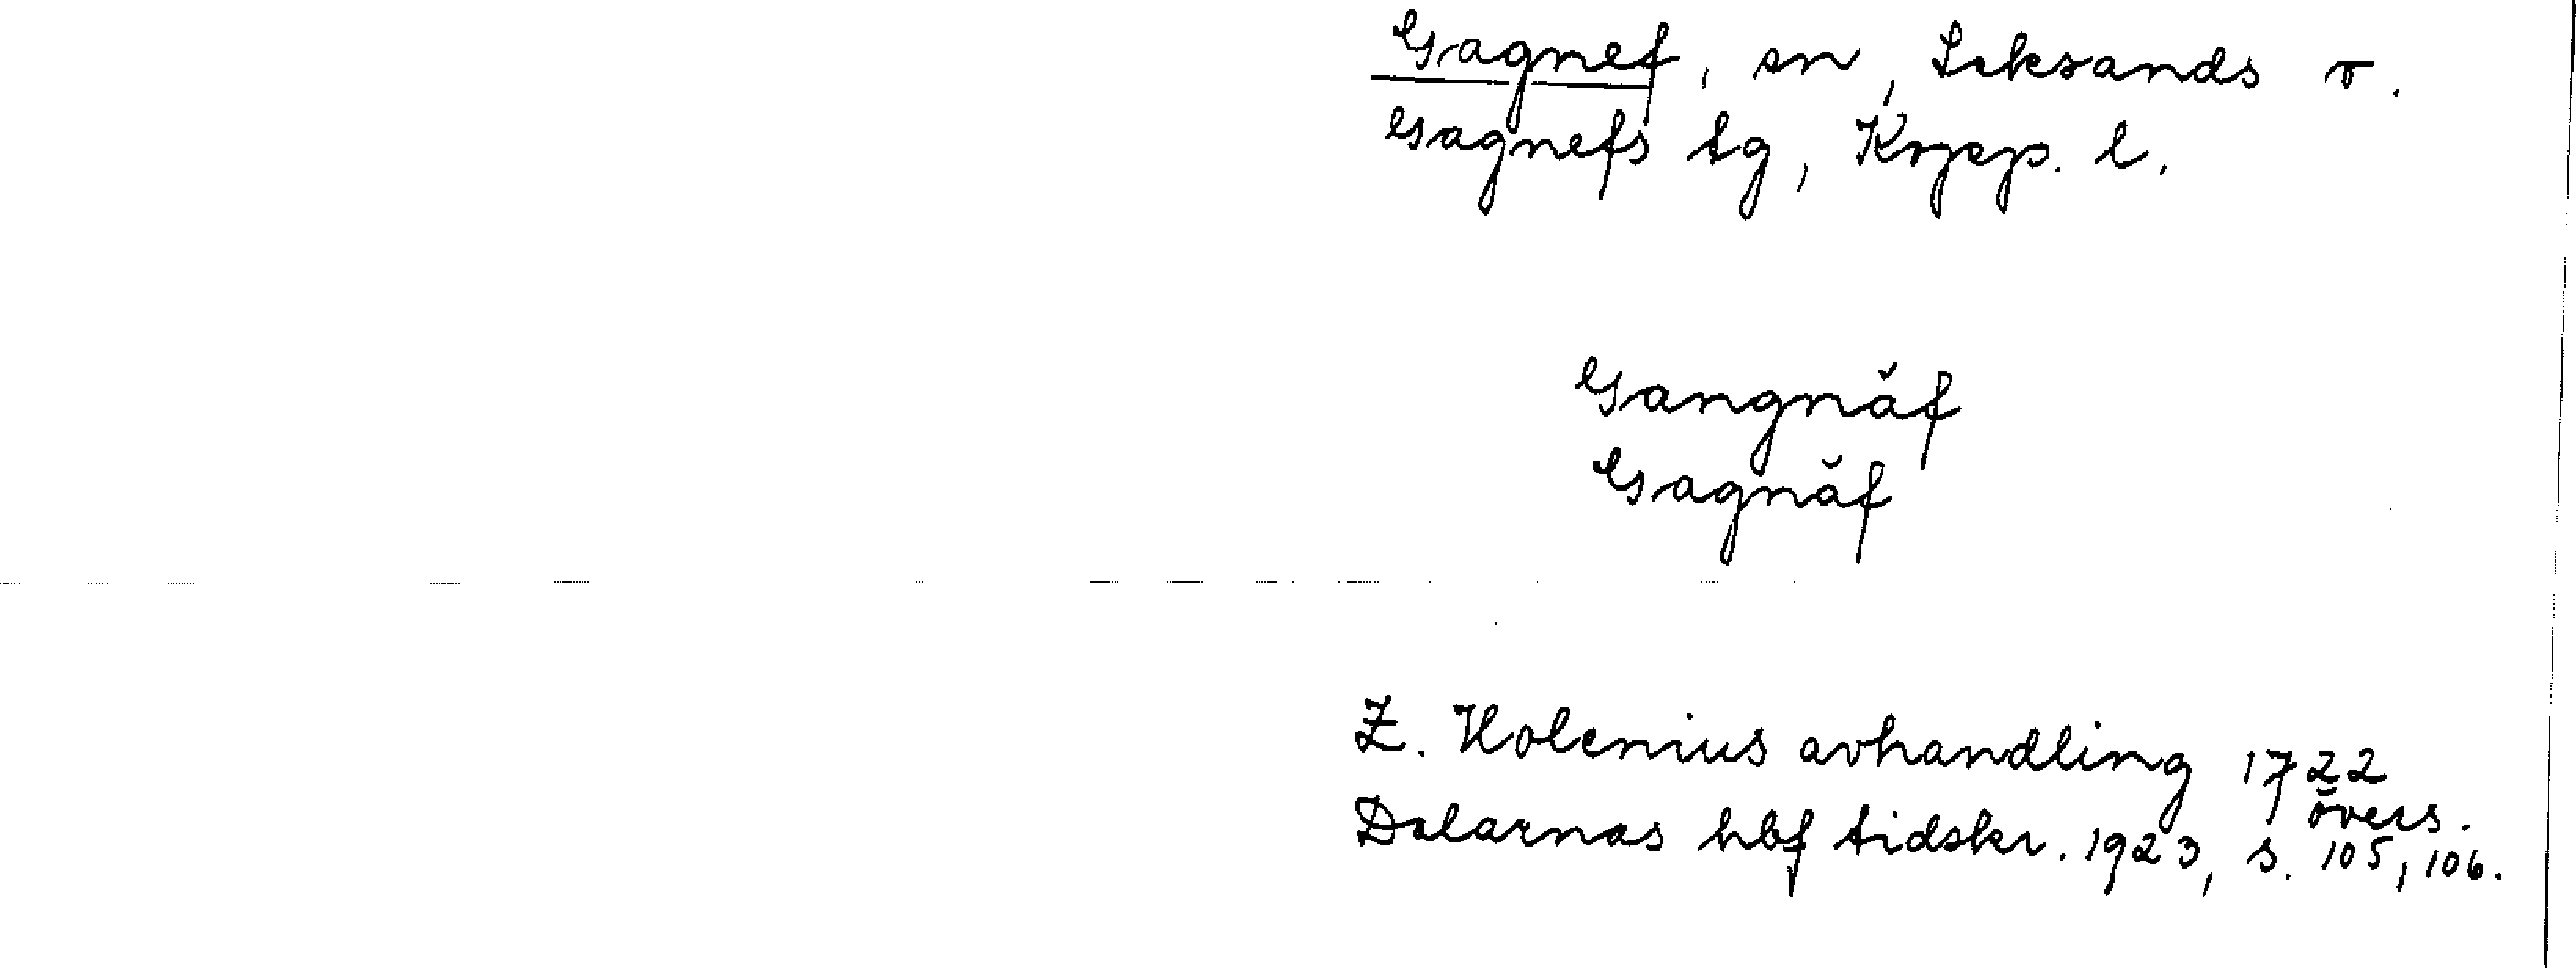 Gagnef, sn, Leksands v.
Gagnefs tg, Kopp. l.
Gangnäf
Gagnäf
Z. Holenius avhandling 1722
övers.
Dalarnas hbf tidskr. 1923, s. 105, 106.